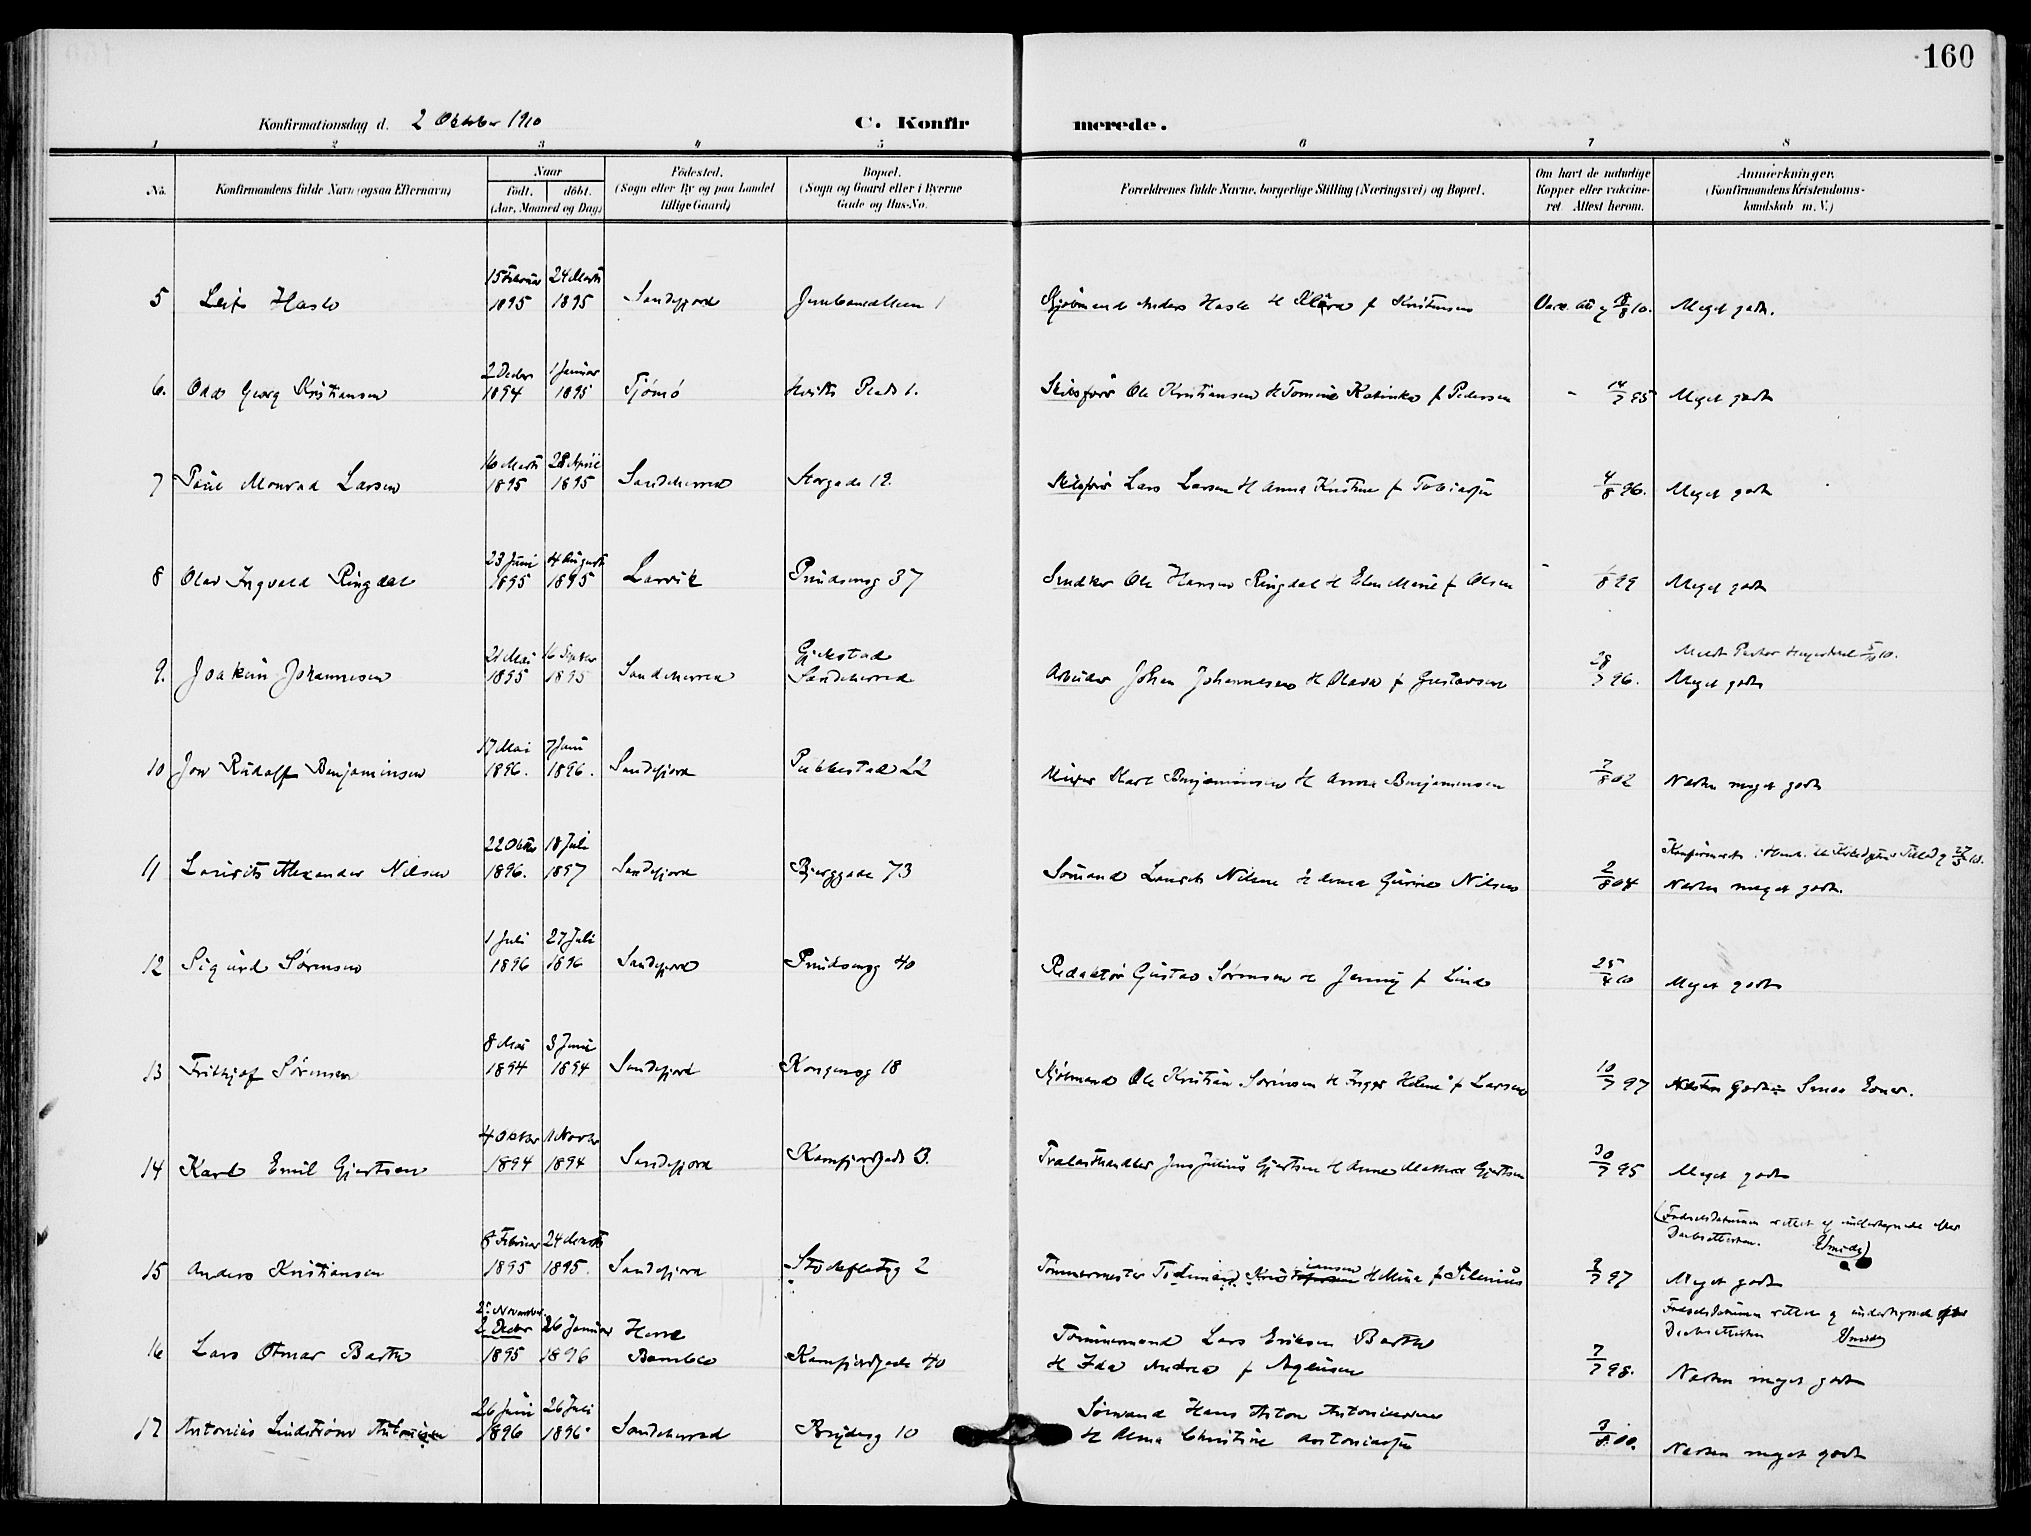 160
Konfirmationsdag d. 2 Oktober 1910
C. Konfirmerede.
1 2 3 4 5 6 7 8
No. Konfirmandens fulde Navn (ogsaa Efternavn) Naar født. døbt. (Aar, Maaned og Dag) Fødested. (Sogn eller By og paa Landet tillige Gaard) Bopæl. (Sogn og Gaard eller i Byerne Gade og Hus-No. Forældrenes fulde Navne, borgerlige Stilling (Næringsvei) og Bopæl. Om havt de naturlige Kopper eller vakcineret. Attest herom. Anmærkninger. (Konfirmandens Kristendomskundskab m. V.)
15 Februar 24 Marts
5 Leif Hasle 1895 1895 Sandefjord Anders Hasle & Klara f Kristensen 8/8 10. Meget godt.
2 Decbr 1 Januar
6. Olaf Georg Kristiansen 1894 1895 Tjømø Plads 1. Skibsfører Ole Kristiansen & Tomine Katinka f Pedersen 14/7 95 Meget godt
16 Marts 28 April
7 Paul Monrad Larsen 1895 1895 Sandeherred Storgade 12. Skibsfører Lars Larsen & Anna Kristine f Tobiassen 4/8 96. Meget godt
23 Juni 4 August
8 Olav Ingvald Ringdal 1895 1895 Larvik Prindsensg 37 Snedker Ole Hansen Ringdal & Elen Marie f Olsen 8 99 Meget godt
21 Mai 16 Septbr Gjekstad
9. Joakim Johannesen 1895 1895 Sandeherred Sandeherred Arbeider Johan Johannesen & Olava f Gustavsen 28/7 96. Meget godt
17 Mai 7 Juni
10 Jon Rudolf Benjaminsen 1896. 1896. Sandefjord Pukkestad 22 Murer Karl Benjaminsen & Anna Benjaminsen 7/8 02 Næsten meget godt
22 Oktbr 18 Juli
11 Laurits Alexander Nilsen 1896. 1897 Sandefjord Bjerggade 73 Sømand Laurits Nilsen & Gurine Nilsen 2/8 04 Næsten meget godt.
1 Juli 27 Juli
12 Sigurd Sørensen 1896 1896 Sandefjord Prindsensg 40 Redaktør Gustav Sørensen & Jenny f Lind 25/4 10 Meget godt
8 Mai 3 Juni
13 Frithjof Sørensen 1894 1894 Sandefjord Kongensg 18 Ole Kristian Sørensen & Inger Helene f Larsen 10/7 97 Næsten godt. Smaa Evner.
4 Oktbr 1 Novbr
14 Karl Emil Gjertsen 1894 1894 Sandefjord Kamfjordgade 13. Trælasthandler Jens Julius Gjertsen & Anne Mathea Gjertsen 30/7 95 Meget godt
(Fødselsdatumen rettet af undertegnede efter
Daabsattesten.
8 Februar 24 Marts
15 Anders Kristiansen 1895 1895. Sandefjord 2 Tømmermester f Silenius 7 97 Meget godt
2 November Fødselsdatumen rettet af undertegnede efter
2 Decbr 26 Januar Herre Daabsattesten
16 Lars Otmar Barth 1895 1896 Bamble Kamfjordgade 40 Tømmermand Lars Eriksen Barth
& Ida Andrea f 7/7 98. Næsten meget godt
26 Juni 26 Juli
17 Antonius Lindstrøm Antonisen 1896 1896 Sandeherred Bryderg 10 Sømand Hans Anton Antoniussen
& Alma Christine Antoniussen 3/8 00. Næsten meget godt